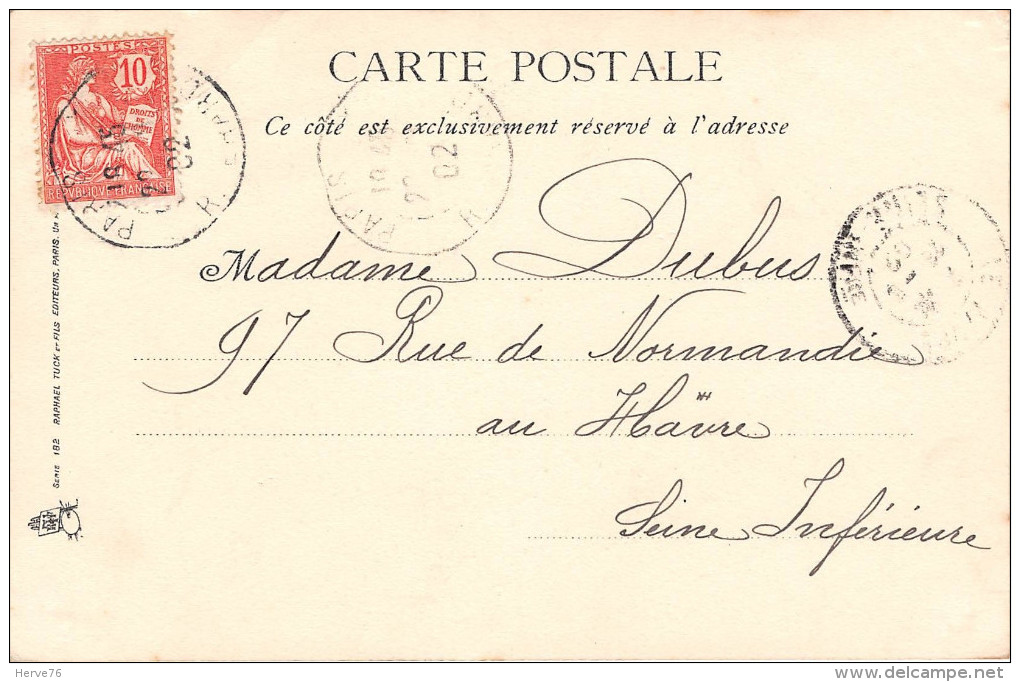 POSTES
10
DROITS
DE
L'HOMME
REPUBLIQUE FRANCAISE
CARTE POSTALE
Ce côté est exclusivement réservé à l'adresse
PARIS
02
R.
PARIS
02
R.
Madame Dubus
97 Rue de Normandie
au Hâvre
Seine Inférieure
SERIE 182 RAPHAEL TUCK ET FILS EDITEURS, PARIS.
Herve76
www.delcampe.net